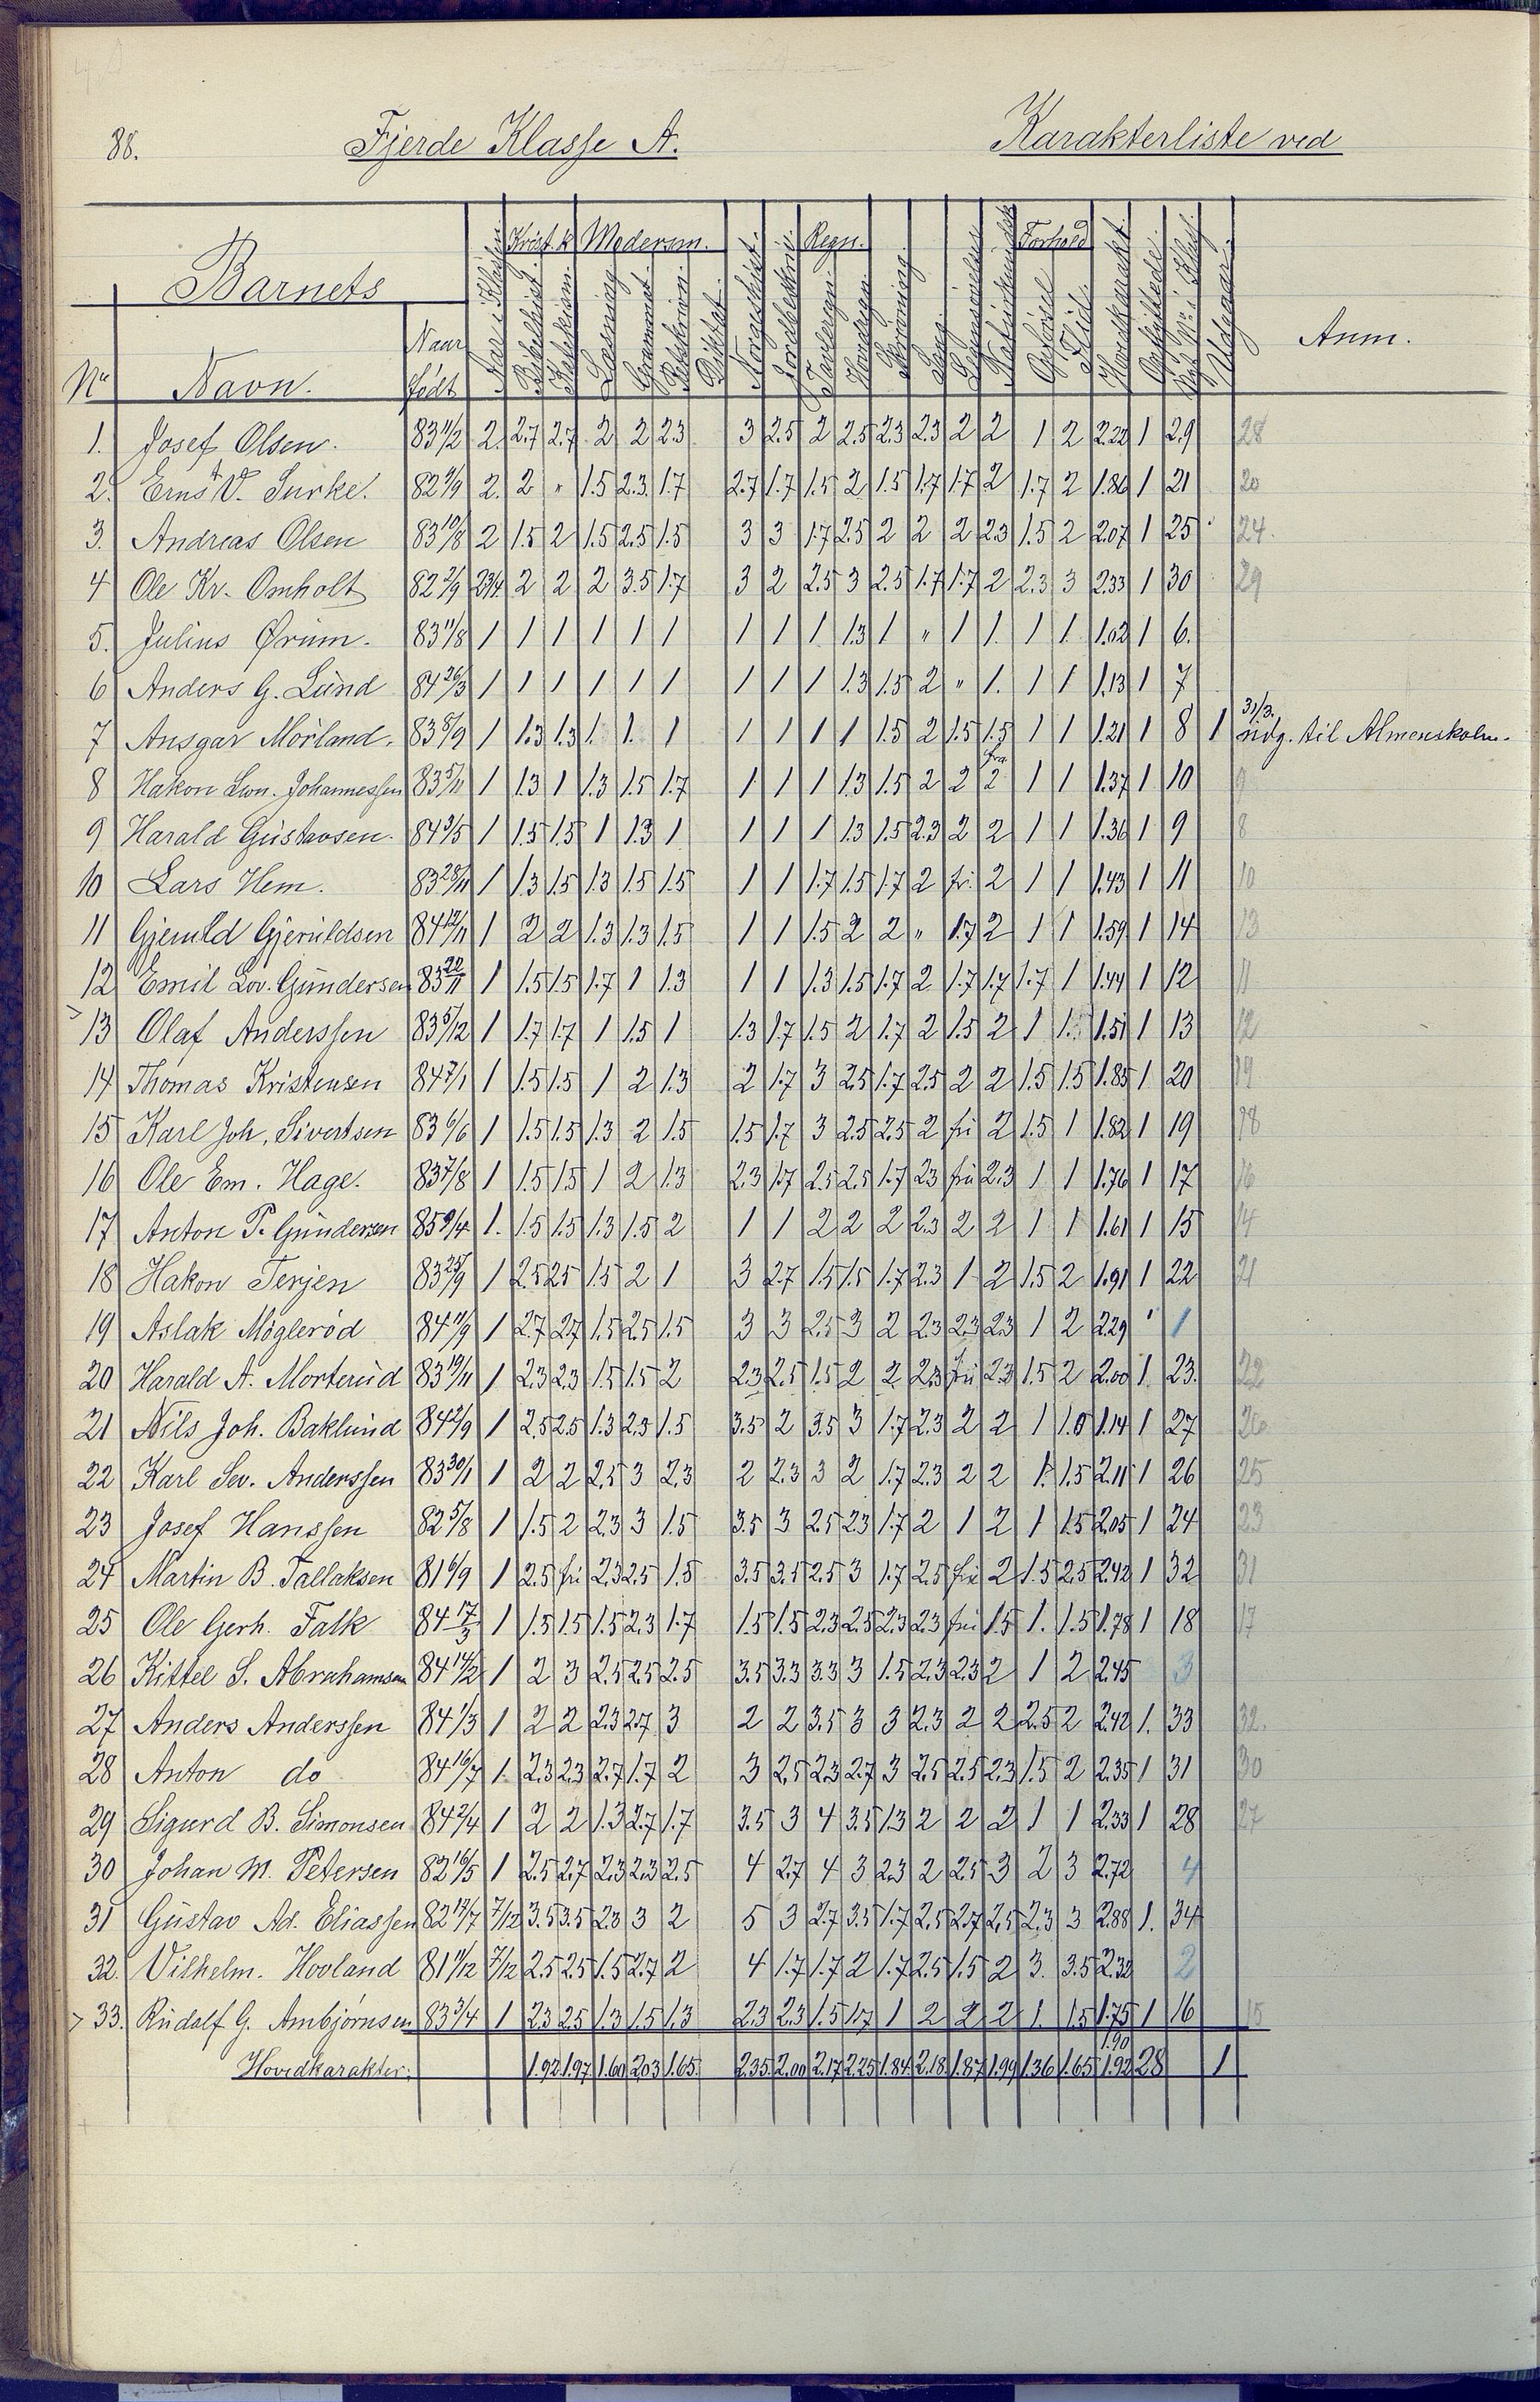 88. Fjerde Klasse A. Karakterliste ved
Barnets Krist.k. Modersm. Regn. Forhold
No Navn. Naar født Aar i Klassen Bibelhist. Katekism. Læsning Grammat. Retskrivn. Diktat. Norgeshist. Jordbeskriv. Tavleregn. Hovedregn. Skrivning. Sang. Opførsel Flid. Hovedkarakt. Opflyttede Udgaar. Anm.
1. Josef Olsen. 83 11/2 2. 2.7 2.7 2 2 2.3 3 2.5 2 2.5 2.3 2.3 2 2 1 2 2.22 1 29 28
2. Ernst V. Surke. 82 9/9 2. 2 " 1.5 2.3 1.7 2.7 1.7 1.5 2 1.5 1.7 1.7 2 1.7 2 1.86 1 21 20
3. Andreas Olsen 83 10/8 2 1.5 2 1.5 2.5 1.5 3 3 1.7 2.5 2 2 2 2.3 1.5 2 2.07 1 25 24.
4 Ole Kr. Omholt 82 2/9 2 3/4 2 2 2 3.5 1.7 3 2 2.5 3 2.5 1.7 1.7 2 2.3 3 2.33 1 30 29
5. Julius Ørum. 83 11/8 1 1 1 1 1 1 1 1 1 1.3 1 " 1 1. 1 1. 1.02 1 6.
6 Anders G. Lund 84 26/3 1 1 1 1 1 1 1 1 1 1.3 1.5 2 " 1. 1 1 1.13 1 7
7 Ansgar Mörland. 83 8/9 1 1.3 1.3 1. 1. 1 1 1 1 1 1.5 2 1.5 1.5 1 1 1.21 1 8 1 31/3. udg. til Almenskolen.
8 Hakon Lun. Johannessen 83 5/11 1 1.3 1 1.3 1.5 1.7 1 1 1 1.3 1.5 2 2 2 1 1 1.37 1 10 9
9 Harald Gustavsen. 84 3/5 1 1.5 1.5 1 1.3 1 1 1 1 1.3 1.5 2.3 2 2 1 1 1.36 1 9 8
10 Lars Hem. 83 28/11 1 1.3 1.5 1.3 1.5 1.5 1 1 1.7 1.5 1.7 2 fri. 2 1 1 1.43 1 11 10
11 Gjeruld Gjeruldsen 84 12/11 1 2 2 1.3 1.3 1.5 1 1 1.5 2 2 " 1.7 2 1 1 1.59 1 14 13
12 Emil Lov. Gundersen 83 20/11 1 1.5 1.5 1.7 1 1.3 1 1 1.3 1.5 1.7 2 1.7 1.7 1.7 1 1.44 1 12 11
> 13 Olaf Anderssen 83 5/12 1 1.7 1.7 1 1.5 1 1.3 1.7 1.5 2 1.7 2 1.5 2 1 1. 1.51 1 13 12
14 Thomas Kristensen 84 7/1 1 1.5 1.5 1 2 1.3 2 1.7 3 2.5 1.7 2.5 2 2 1.5 1.5 1.85 1 20 19
15 Karl Joh. Sivertsen 83 6/6 1 1.5 1.5 1.3 2 1.5 1.5 1.7 3 2.5 2.5 2 fri 2 1.5 1 1.82 1 19 18
16 Ole Em. Hage. 83 7/8 1 1.5 1.5 1 2 1.3 2.3 1.7 2.5 2.5 1.7 2.3 fri 2.3 1 1 1.76 1 17 16
17 Anton P. Gundersen 85 9/4 1. 1.5 1.5 1.3 1.5 2 1 1 2 2 2 2.3 2 2 1 1 1.61 1 15 14
18 Hakon Terjen 83 25/9 1 2.5 2.5 1.5 2 1 3 2.7 1.5 1.5 1.7 2.3 1 2 1.5 2 1.91 1 22 21
19 Aslak Mögleröd 84 11/9 1 2.7 2.7 1.5 2.5 1.5 3 3 2.5 3 2 2.3 2.3 2.3 1 2 2.29 " 1
20 Harald A. Morterud 83 19/11 1 2.3 2.3 1.5 1.5 2 2.3 2.5 1.5 2 2 2.3 fri 2.3 1.5 2 2.00 1 23. 22
21 Nils Joh. Baklund 84 2/9 1 2.5 2.5 1.3 2.5 1.5 3.5 2 3.5 3 1.7 2.3 2 2 1 1.0 1.14 1 27 26
22 Karl Sev. Anderssen 83 30/1 1 2 2 2.5 3 2.3 2 2.3 3 2 1.7 2.3 2 2 1. 1.5 2.11 1 26 25
23 Josef Hanssen 82 5/8 1 1.5 2 2.3 3 1.5 3.5 3 2.5 2.3 1.7 2 1 2 1 1.5 2.05 1 24 23
24 Martin B. Tallaksen 81 6/9 1 2.5 fri 2.3 2.5 1.5 3.5 3.5 2.5 3 1.7 2.5 fri 2 1.5 2.5 2.42 1 32 31
25 Ole Gerh. Falk 84 17/3 1 1.5 1.5 1.5 2.3 1.7 1.5 1.5 2.3 2.5 2.3 2.3 fri 1.5 1. 1.5 1.78 1 18 17
26 Kittel S. Abrahamsen 84 14/2 1 2 3 2.5 2.5 2.5 3.5 3.3 3.3 3 1.5 2.3 2.3 2 1 2 2.45 3
27 Anders Anderssen 84 1/3 1 2 2 2.3 2.7 3 2 2 3.5 3 3 2.3 2 2 2.5 2 2.42 1. 33 32.
28 Anton do 84 16/7 1. 2.3 2.3 2.7 1.7 2 3 2.5 2.3 2.7 3 2.5 2.5 2.3 1.5 2 2.35 1 31 30
29 Sigurd B. Simonsen 84 2/4 1 2 2 1.3 2.7 1.7 3.5 3 4 3.5 1.3 2 2 2 1 1 2.33 1 28 27
30 Johan M. Petersen 82 16/5 1 2.5 2.7 2.3 2.3 2.5 4 2.7 4 3 2.3 2 2.5 3 2 3 2.72 4
31 Gustav Ad. Eliassen 82 13/7 7/12 3.5 3.5 2.3 3 2 5 3 2.7 3.5 1.7 2.5 2.7 2.5 2.3 3 2.88 1. 34
32. Vilhelm. Hovland 81 11/12 7/12 2.5 2.5 1.5 2.7 2 4 1.7 1.7 2 1.7 2.5 1.5 2 3. 3.5 2.32 2
> 33. Rudolf G. Ambjörnsen 83 3/4 1 2.3 2.5 1.3 1.5 1.3 2.3 2.3 1.5 1.7 1 2 2 2 1. 1.5 1.75 1 16 15
1.90
Hovedkarakter: 1.92 1.97 1.60 2.03 1.65. 2.35. 2.00 2.17 2.25 1.84. 2.18. 1.87 1.99 1.36 1.65 1.92 28 1